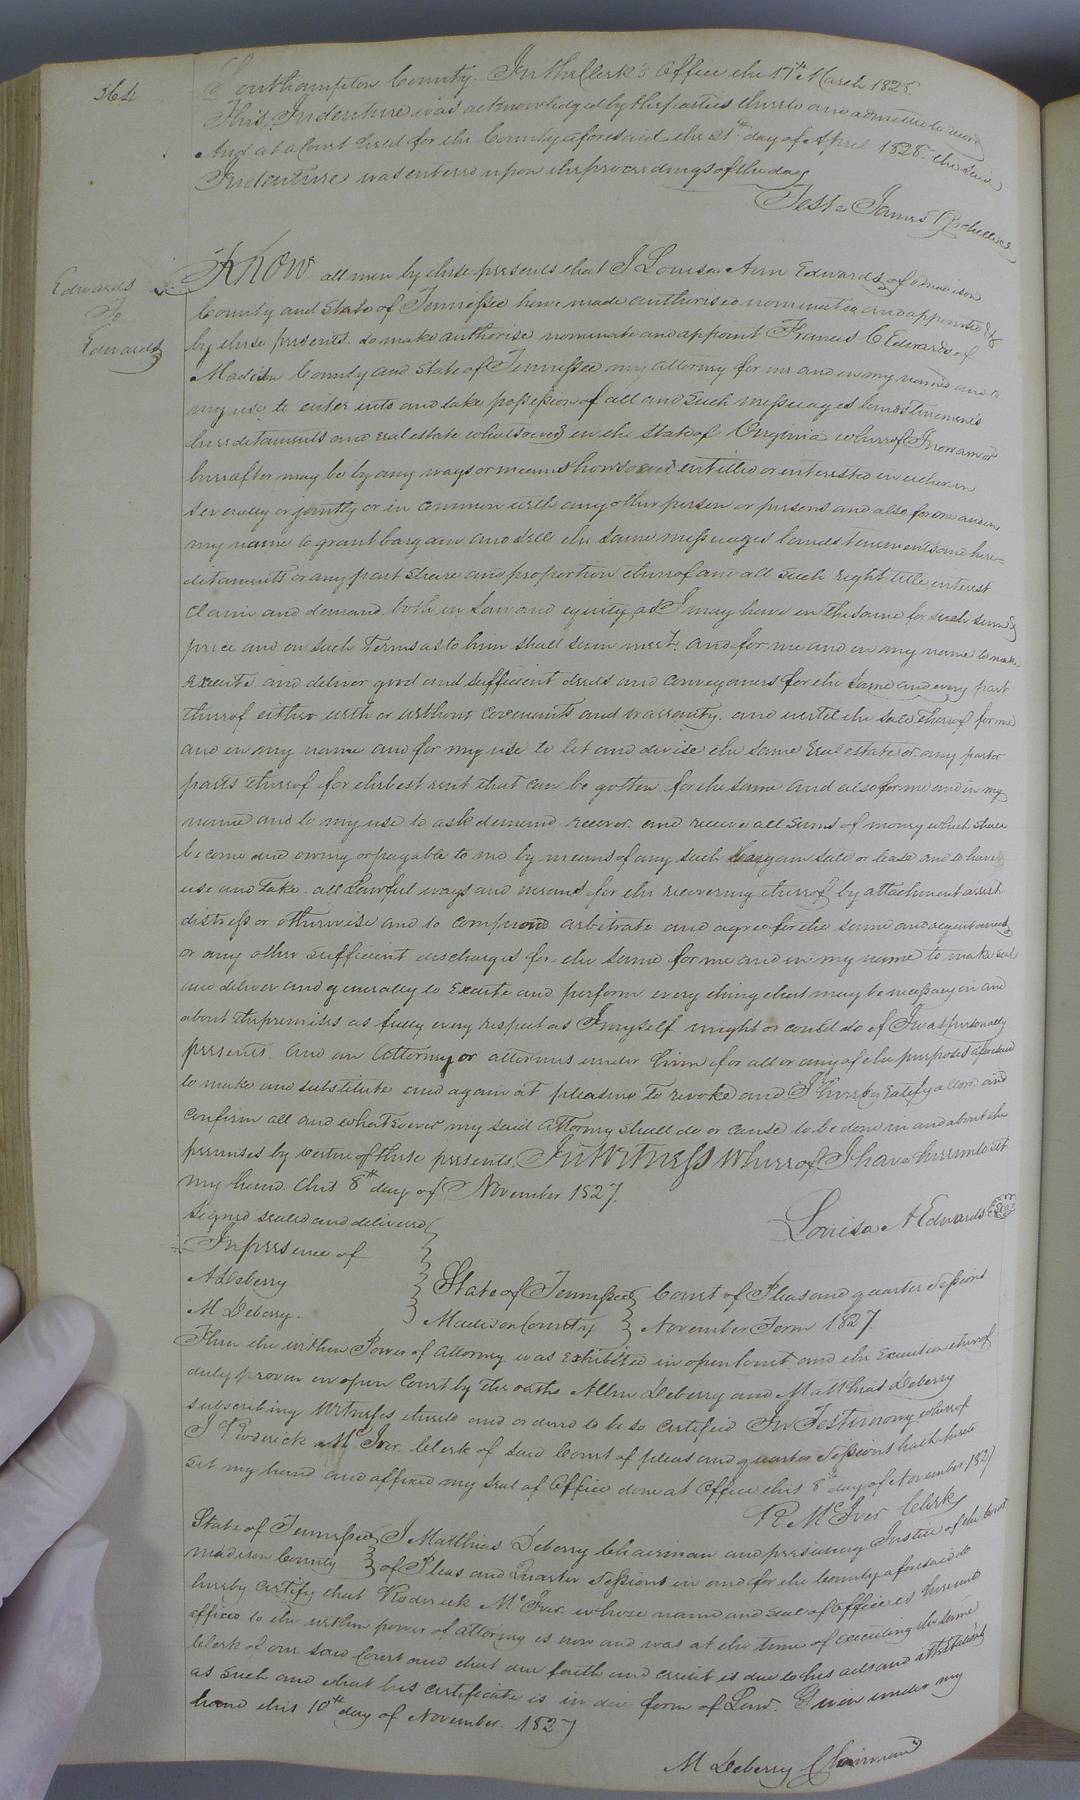 364
Southampton County. In the Clerk's Office the 17th March 1828
This Indenture was acknowledged by the parties thereto and admitted to record
And at a Court held for the County aforesaid the 21st day of April 1828 the said
Indenture was entered upon the proceedings of the day
Teste James Rochelle
Edwards
To
Edwards
Know all men by these presents that I Louisa Ann Edwards of Madison
County and State of Tennessee have made authorised nominated and appointed &
by these presents do make authorise nominate and appoint Francis C Edwards of
Madison County and State of Tennessee my attorney for me and in my name and to
my use to enter into and take possession of all and such messuages lands tenements
hereditaments and real estate whatsoever in the State of Virginia whereof I now am or
hereafter may be by any ways or means howsoever entitled or interested in either in
severally or jointly or in common with any other person or persons and also for me and in
my name to grant bargain and sell the same messuages lands tenements and here=
ditaments or any part share and proportion thereof and all such right title interest
claim and demand both in Law and equity as I may have in the same for such sum &
price and on such Terms as to him shall seem meet, and for me and in my name to make
execute and deliver good and sufficient deeds and conveyances for the same and every part
thereof either with or without covenants and warranty. and until the sale thereof for me
and in my name and for my use to let and devise the same real estate or any part or
parts thereof for the best rent that can be gotten for the same and also for me and in my
name and to my use to ask demand recover and receive all sums of money which shall
become due owing or payable to me by means of any such bargain sale or lease and to have
use and take all Lawful ways and means for the recovering thereof by attachment arrest
distress or otherwise and to compound arbitrate and agree for the same and acquittances
or any other sufficient discharges for the same for me and in my name to make seal
and deliver and generally to Execute and perform every thing that may be necessary in and
about the premises as fully every respect as I myself might or could do if I was personally
presents. and an Attorney or attornies under him for all or any of the purposes aforesaid
to make and substitute and again at pleasure to revoke and I hereby ratify allow and
confirm all and whatsoever my said Attorney shall do or cause to be done in and about the
premises by virtue of these presents. In Witness Whereof I have hereunto set
my hand this 8th day of November 1827.
Signed sealed and delivered
In presence of
A Deberry
M Deberry.
Louisa A Edwards
State of Tennessee Court of Pleas and quarter Sessions
Madison County November Term 1827.
Then the within Power of Attorney was exhibited in open Court and the Execution thereof
duly proven in open Court by the oaths Allen Deberry and Matthias Deberry
subscribing Witnesses thereto and ordered to be so certified In Testimony whereof
I Roderick McIver Clerk of said Court of pleas and quarter Sessions hath hereto
set my hand and affixed my seal of Office done at Office this 8th day of November 1827
R McIver Clerk
State of Tennessee I Matthias Deberry Chairman and presiding Justice of the Court
Madison County of Pleas and Quarter Sessions in and for the County aforesaid do
hereby certify that Roderick McIver whose name and seal of office is hereunto
affixed to the within power of attorney is now and was at the time of executing the same
Clerk of our said Court and that due faith and credit is due to his acts and attestations
as such and that his certificate is in due form of Law. Given under my
hand this 10th day of November 1827
M Deberry Chairman